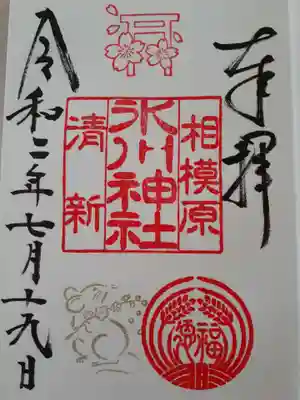 奉拝
相模原
氷川神社
清新
令和二年七月十九日
福